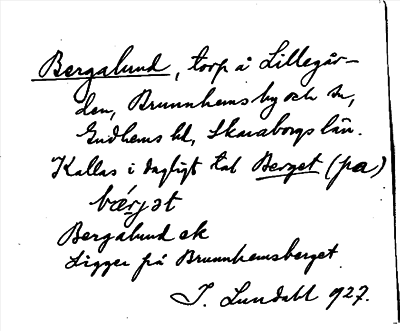 Bergalund, torp å Lillegår-
den, Brunnhems by och sn,
Gudhems hd, Skaraborgs län.
Kallas i dagligt tal Berget (på)
bǽrjət
Bergalund ek
Ligger på Brunnhemsberget.
J. Lundahl 1927.